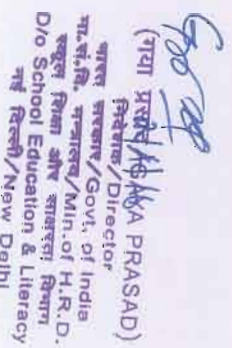 (गया प्रसाद/GAYA PRASAD)
निदेशक/Director
भारत सरकार/Govt. of India
मा.सं.वि. मंत्रालय/Min.of H.R.D.
स्कूल शिक्षा और साक्षरता विभाग
D/o School Education & Literacy
नई दिल्ली/New Delhi